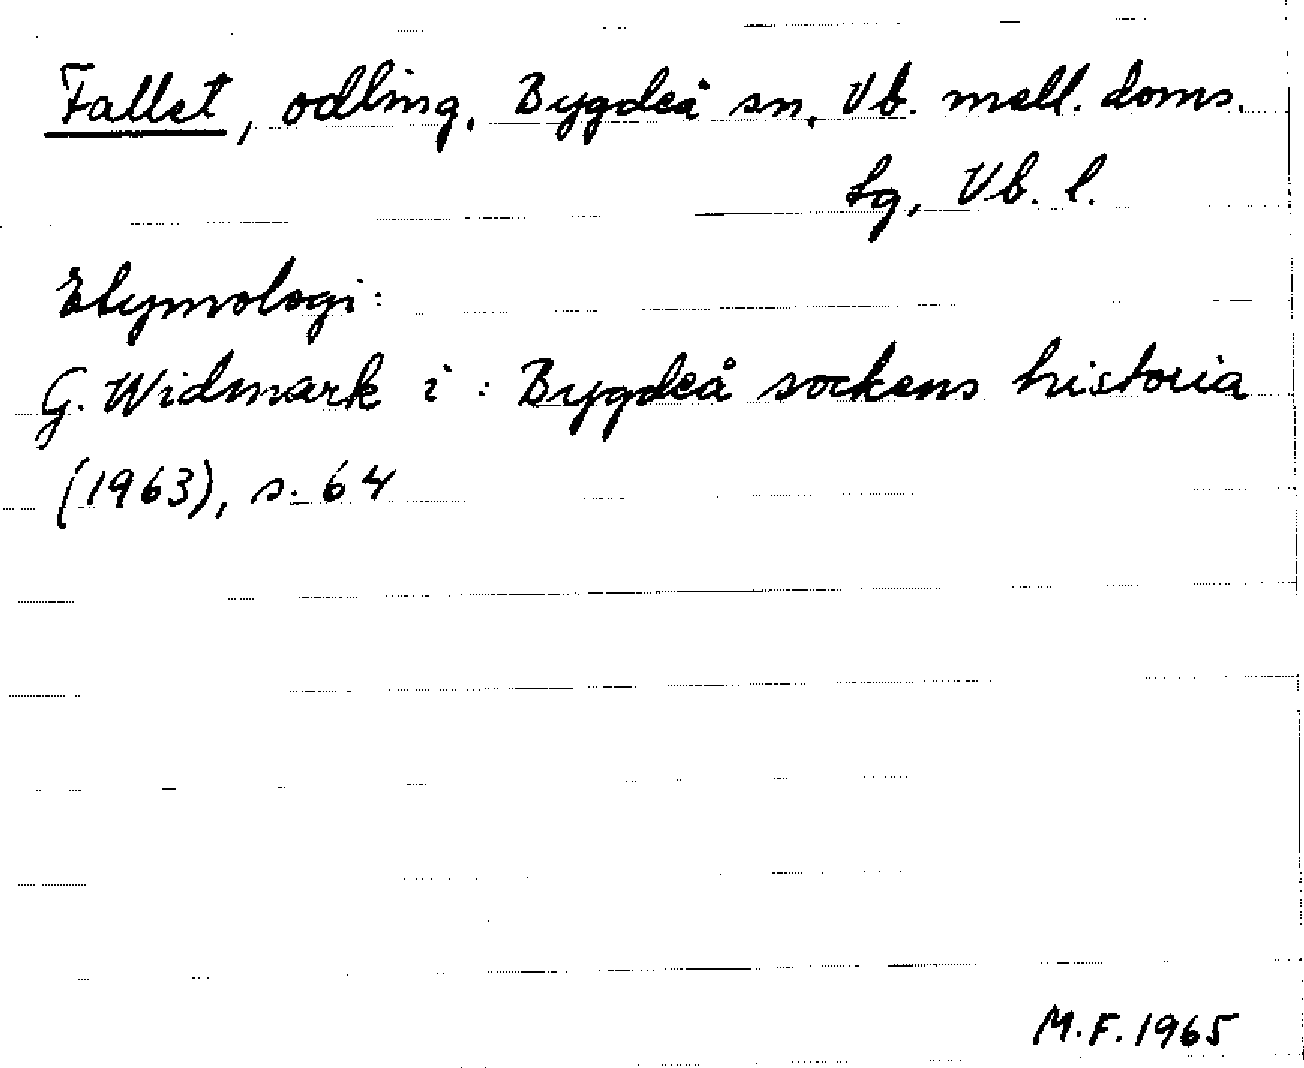 Fallet, odling, Bygdeå sn, Vb. mell. doms.
sg, Vb. l.
Etymologi:
G. Widmark i: Bygdeå sockens historia
(1963), s. 64
M.F. 1965